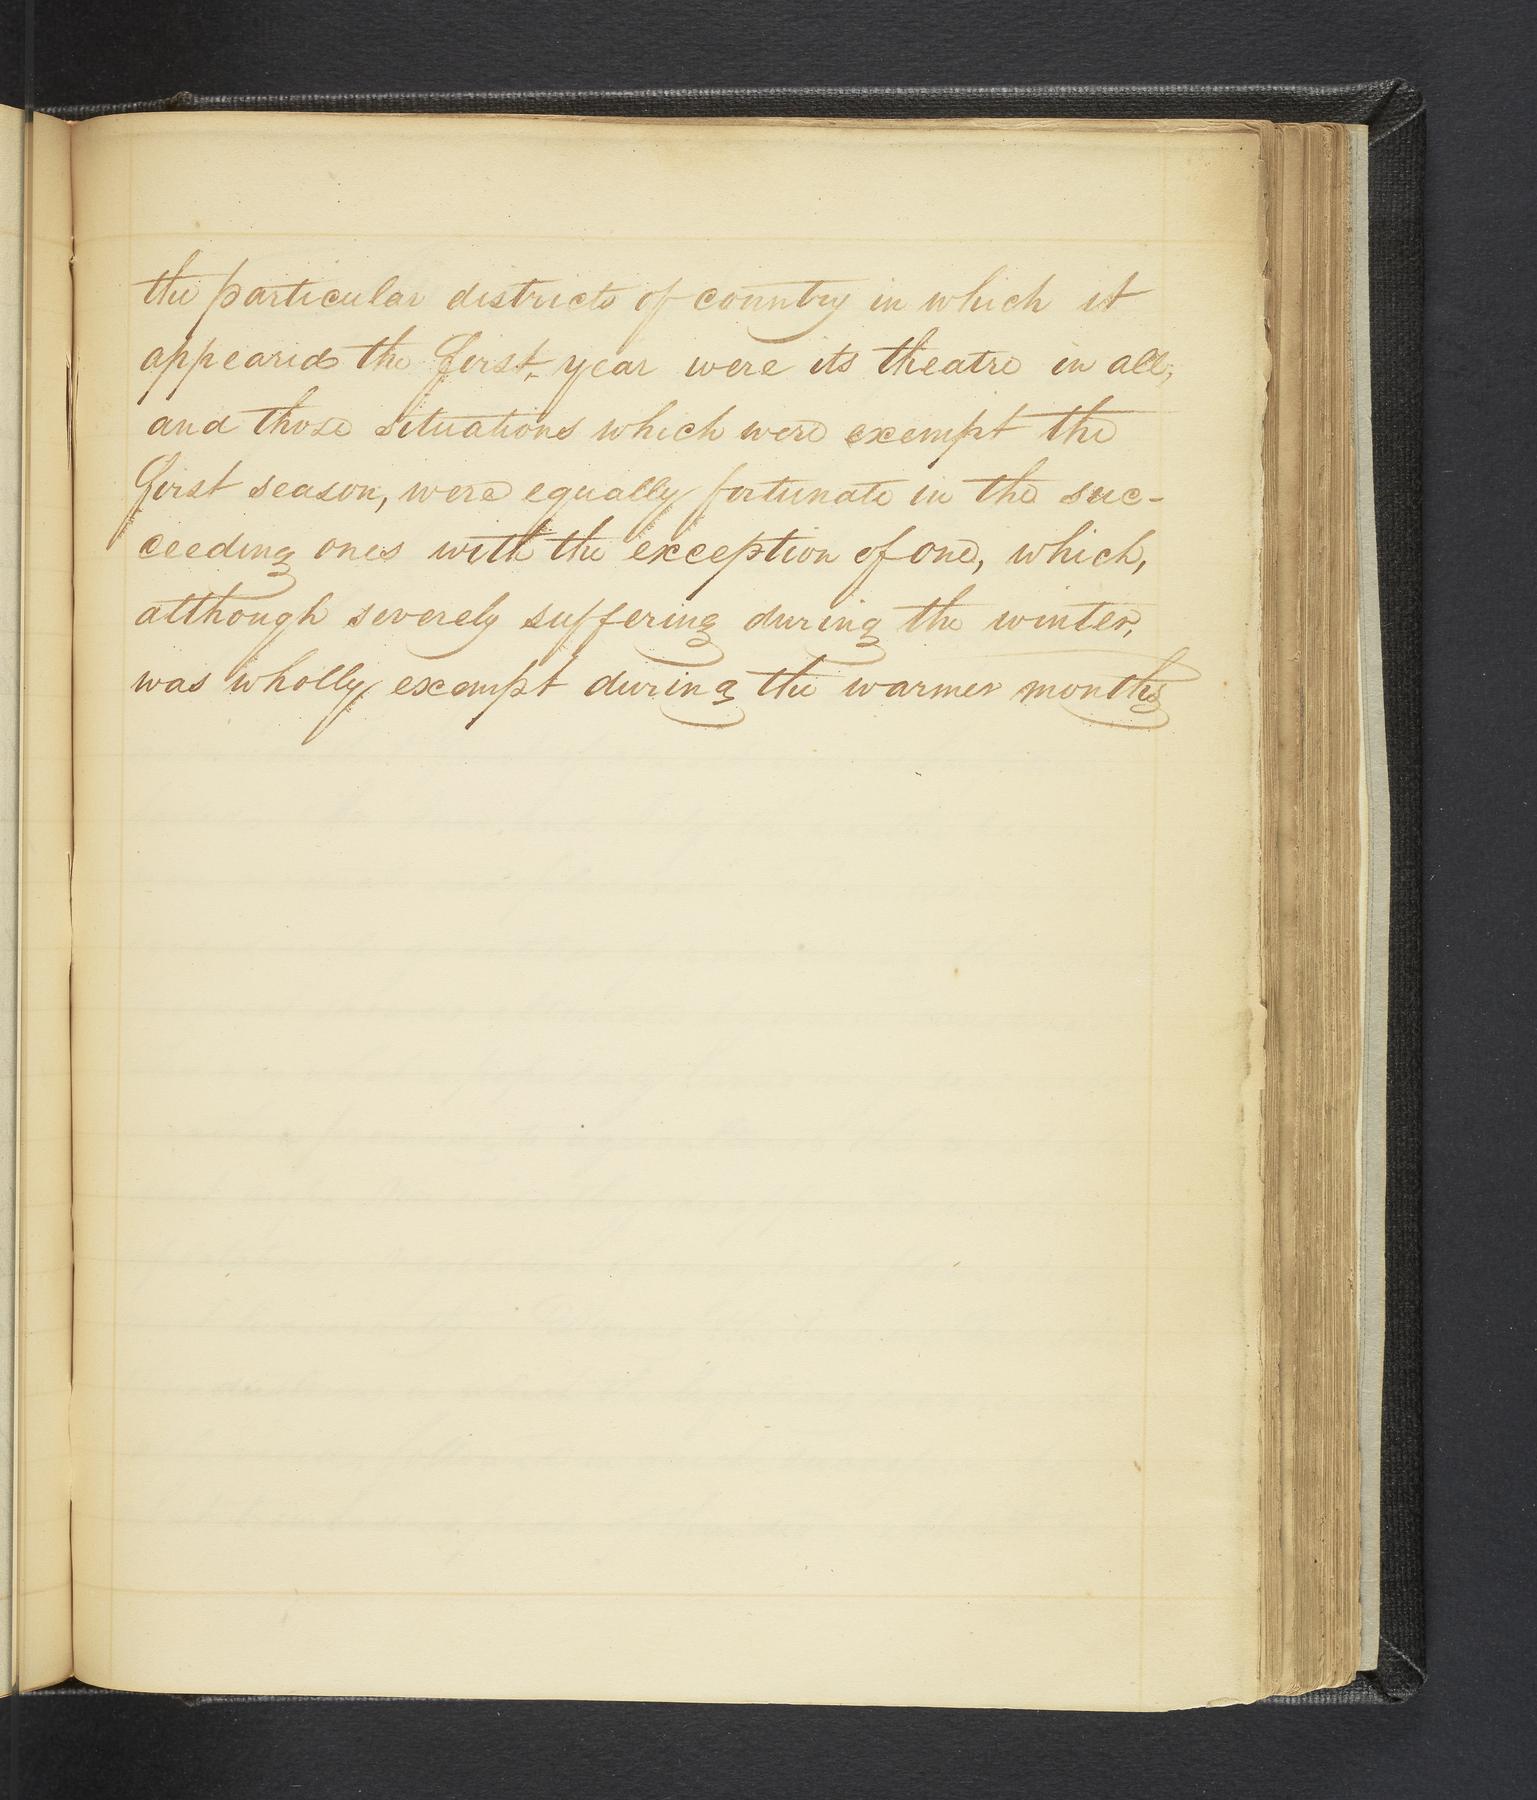 the particular districts of country in which it
appeared the first, year were its theatre in all;
and those situations which were exempt the
first season, were equally fortunate in the suc-
ceeding ones with the exception of one, which,
although severely suffering during the winter,
was wholly exempt during the warmer months